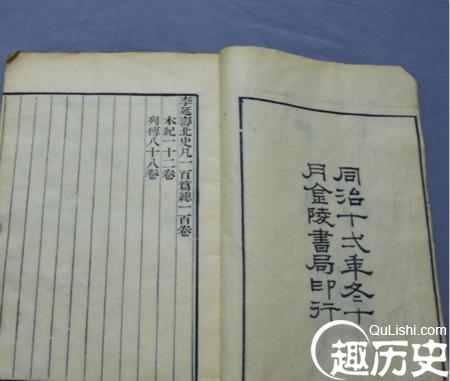 同治十弍年冬十
月金陵書局印行
李延壽北史凡一百篇總一百卷
本紀一十二卷
列傳八十八卷
QuLishi.com
趣历史